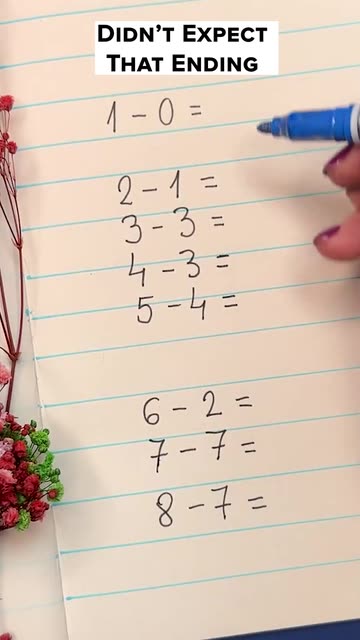 DIDN'T EXPECT
THAT ENDING
1 - 0 =
2 - 1 =
3 - 3 =
4 - 3 =
5 - 4 =
6 - 2 =
7 - 7 =
8 - 7 =